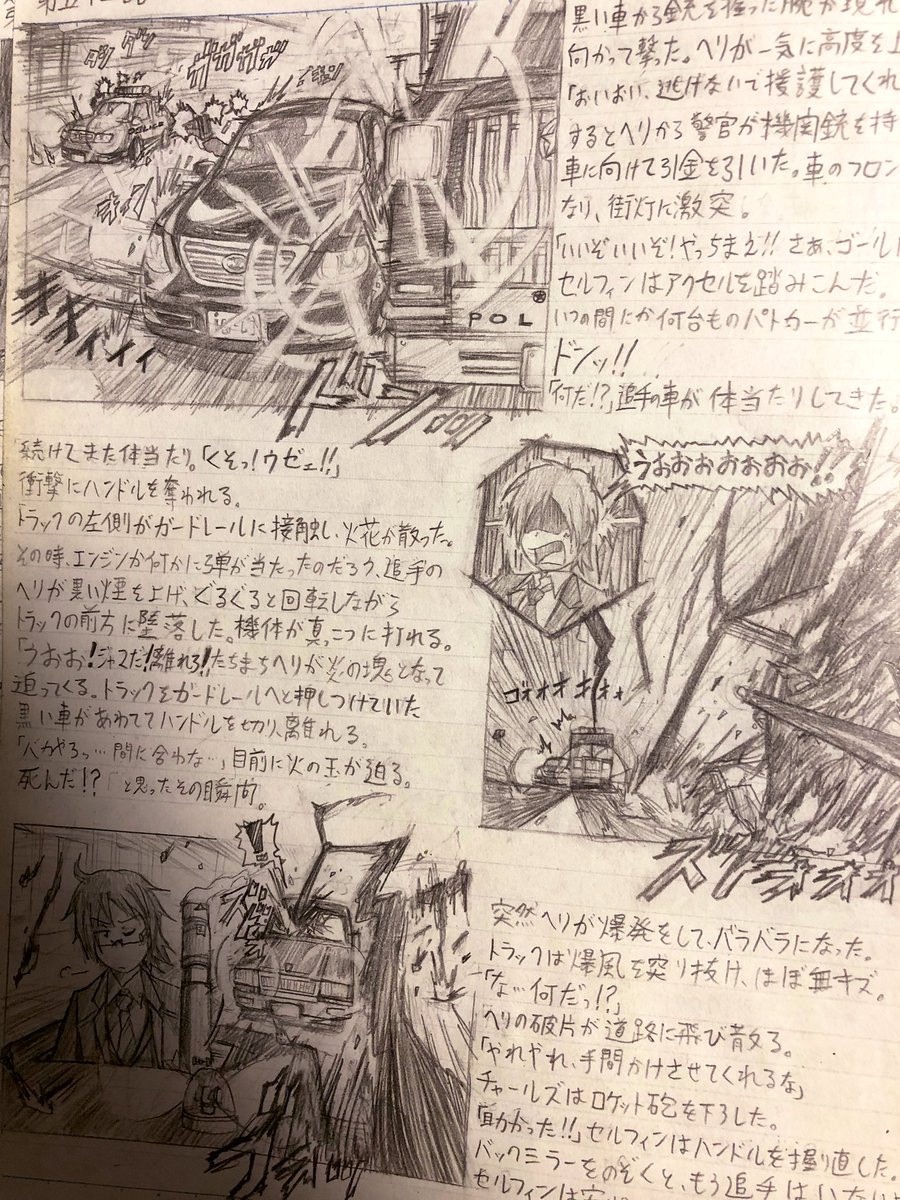 黒い車から銃を握った腕が現れ
向かって撃った。ヘリが一気に高度を上
「おいおい、逃げないで援護してくれ
するとヘリから警官が機関銃を持
車に向けて引金を引いた。車のフロン
なり、街灯に激突。
「いいぞいいぞ!やっちまえ!!さあ、ゴールい
セルフィンはアクセルを踏みこんだ。
いつの間にか何台ものパトカーが並行
ドンッ!!
「何だ!?」追手の車が体当たりしてきた。
ガガガガ
POLICE
POL
続けてまた体当たり。「くそっ!ウゼェ!!」
衝撃にハンドルを奪われる。
トラックの左側がガードレールに接触し、火花が散った。
その時、エンジンか何かに弾が当たったのだろう、追手の
ヘリが黒い煙を上げ、ぐるぐると回転しながら
トラックの前方に墜落した。機体が真っ二つに折れる。
「うおお!ジャスだ!離れろ!」たちまちヘリが炎の塊となって
迫ってくる。トラックをガードレールへと押しつけていた
黒い車があわててハンドルを切り離れる。
「バカやろっ…間に合わな…」目前に火の玉が迫る。
死んだ!?と思ったその瞬間。
うおおおおおおお!!
ゴォオオオオォォ
ズザ
突然ヘリが爆発をして、バラバラになった。
トラックは爆風を突り抜け、ほぼ無キズ。
「な…何だっ!?」
ヘリの破片が道路に飛び散る。
「やれやれ、手間かけさせてくれるな」
チャールズはロケット砲を下ろした。
「助かった!!」セルフィンはハンドルを握り直した。
バックミラーをのぞくと、もう追手はいない
セルフィンは